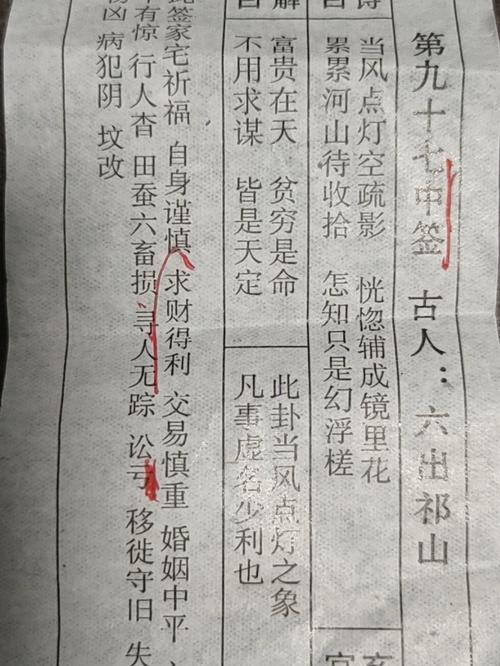 第九十七中签 古人：六出祁山
曰
当风点灯空疏影 恍惚辅成镜里花
累累河山待收拾 怎知只是幻浮槎
解
曰
富贵在天 贫穷是命
不用求谋 皆是天定
此卦当风点灯之象
凡事虚名少利也
签家宅祈福 自身谨慎 求财得利 交易慎重 婚姻中平
有惊 行人杳 田蚕六畜损 寻人无踪 讼亏 移徙守旧 失
凶 病犯阴 坟改